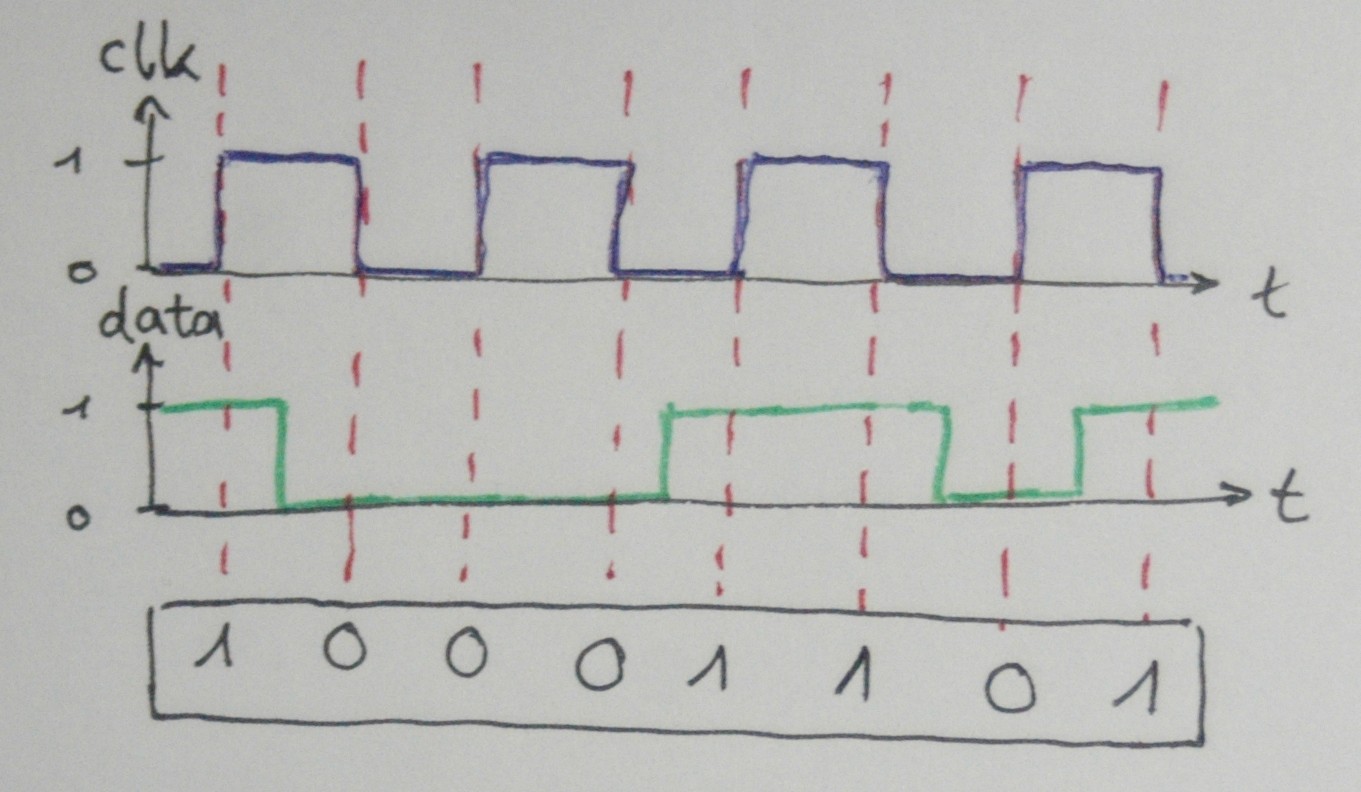 clk
1
0
t
data
1
0
t
1 0 0 0 1 1 0 1